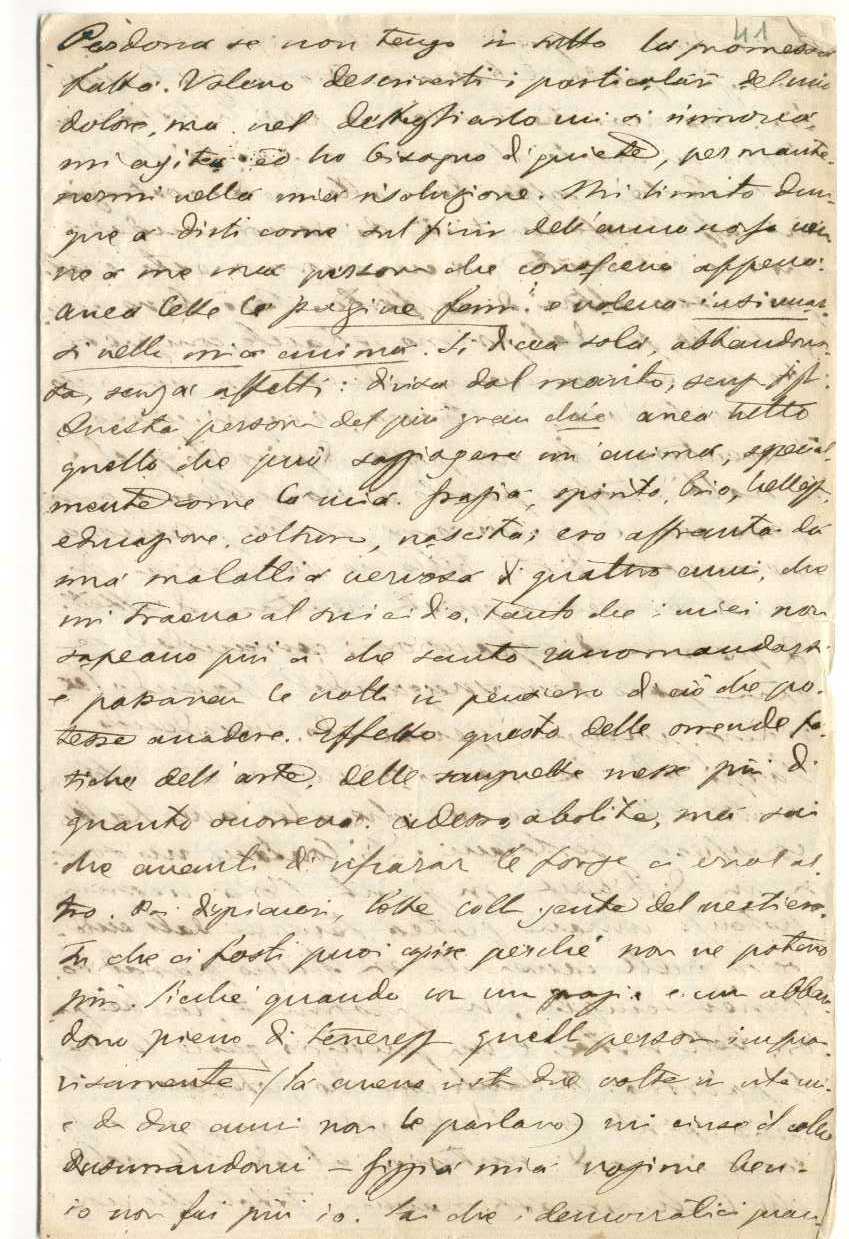 41
Perdona se non tengo in tutto la promessa
fatta. Volevo descriverti i particolari del mio
dolore, ma nel dettagliarlo mi si rinnova,
mi agita ed ho bisogno di quiete, per mante-
nermi nella mia risoluzione. Mi limito dun-
que a dirti come sul finir dell'anno scorso ven-
ne a me una persona che conoscevo appena.
avea lette le pagine fem. e voleva insinuar-
si nella mia anima. Si dicea sola, abbandona-
ta, senza affetti: divisa dal marito, senza figli.
Questa persona del più gran chic avea tutto
quello che può soggiogare un'anima, special-
mente come la mia. grazia, spirito, brio, bellezz.
educazione, coltura, nascita; ero affranta da
una malattia nervosa di quattro anni, che
mi traeva al suicidio, tanto che i miei non
sapeano più a che santo raccomandarsi
e passavan le notti in pensiero di ciò che po-
tesse accadere. Effetto questo delle orrende fa-
tiche dell'arte, delle sanguette messe più di
quanto occorreva. adesso abolite, ma sai
che avanti di riparar le forze ci vuol al-
tro. Poi dispiaceri, lotte colla gente del mestiere.
Tu che ci fosti puoi capire perché non ne potevo
più. Sicché quando con una grazia e un abban-
dono pieno di tenerezz quella persona improv-
visamente (la avevo vista due volte in
e da due anni non le parlavo) mi cinse il collo
susurrandomi —
io non fui più io. Sai che i democratici